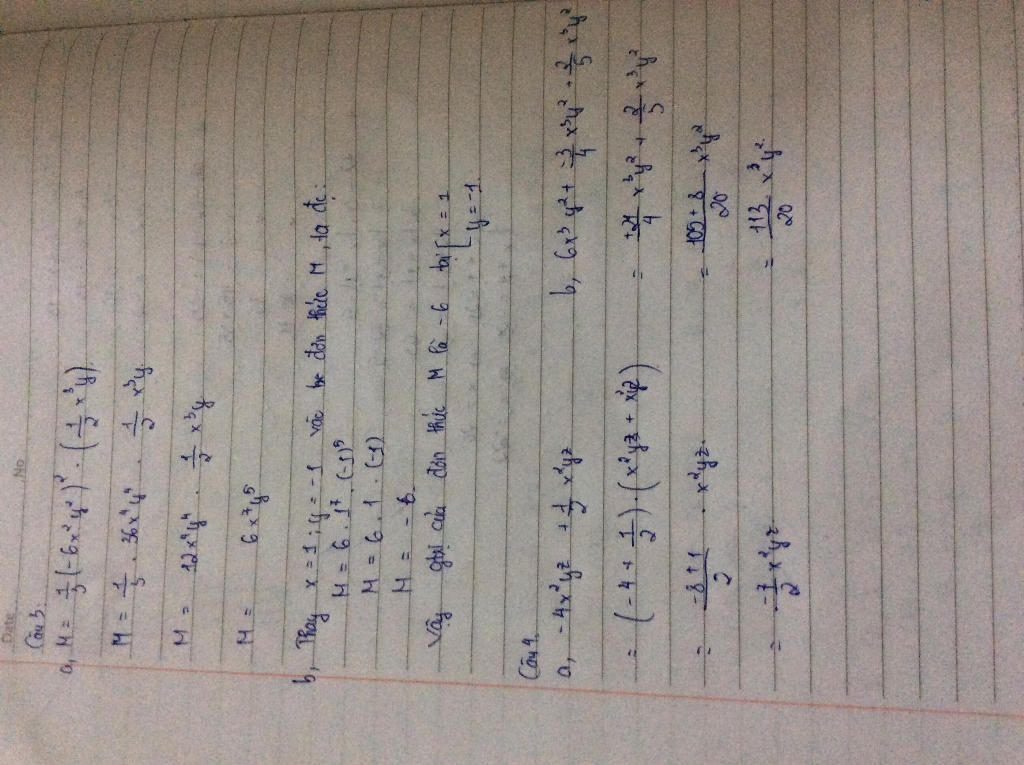 Date No
Câu 3.
a, M = 1/3 (-6x²y²)² · (1/2 x³y)
M = 1/3 · 36x⁴y⁴ · 1/2 x³y
M = 12x⁴y⁴ · 1/2 x³y
M = 6x⁷y⁵
b, Thay x = 1 ; y = -1 vào đơn thức M, ta đc:
M = 6 · 1⁷ · (-1)⁵
M = 6 · 1 · (-1)
M = -6.
Vậy gtrị của đơn thức M là -6 tại [x = 1
y = -1
Câu 4.
a, -4x²yz + 1/2 x²yz
= (-4 + 1/2) · (x²yz + x²yz)
= -8+1/2 · x²yz.
= -7/2 x²yz
b, 6x³y² + -3/4 x³y² + 2/5 x³y²
= +21/4 x³y² + 2/5 x³y²
= 105+8/20 x³y²
= 113/20 x³y².